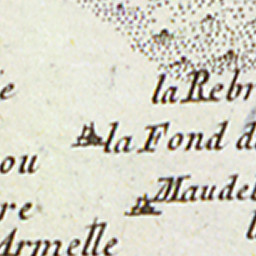 la Rebr
la Fond d
ou
Maudel
re
Armelle